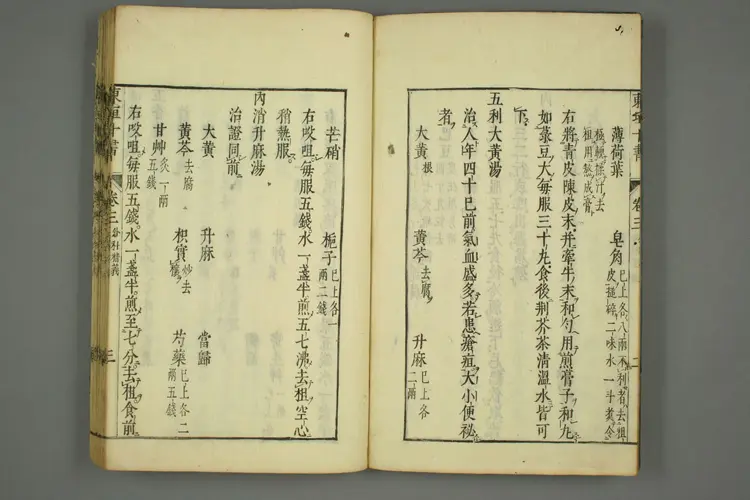 東垣十書 卷三 二
薄荷葉 皂角 已上各八兩不利者去柤皮搥碎二味水一斗煮令
極軟揉汁去柤用熬成膏
右將青皮陳皮末并牽牛末和勻用煎膏子和丸
如菉豆大每服三十丸食後荆芥茶清溫水皆可
下
五利大黃湯
治人年四十已前氣血盛多若患瘡疽大小便祕
者
大黃 根 黃芩 去腐 升麻 已上各二兩
芒硝 梔子 已上各一兩二錢
右㕮咀每服五錢水一盞半煎五七沸去柤空心
稍熱服
內消升麻湯
治證同前
大黃 升麻 當歸
黃芩 去腐 枳實 炒去穰 芍藥 已上各二兩五錢
甘艸 炙一兩五錢
右㕮咀每服五錢水一盞半煎至七分去柤食前
東垣十書 卷三 三